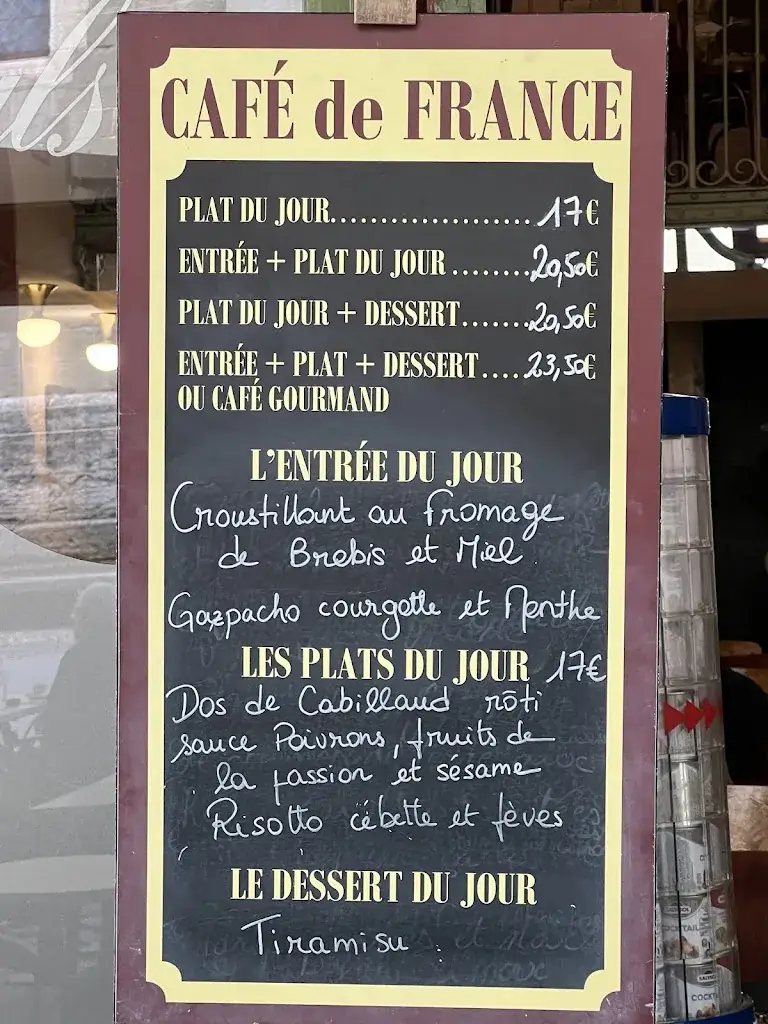 CAFÉ de FRANCE
PLAT DU JOUR.....................17€
ENTRÉE + PLAT DU JOUR ........20,50€
PLAT DU JOUR + DESSERT.......20,50€
ENTRÉE + PLAT + DESSERT.....23,50€
OU CAFÉ GOURMAND
L'ENTRÉE DU JOUR
Croustillant au fromage
de Brebis et Miel
Gazpacho courgette et Menthe
LES PLATS DU JOUR 17€
Dos de Cabillaud rôti
sauce Poivrons, fruits de
la passion et sésame
Risotto cébette et fèves
LE DESSERT DU JOUR
Tiramisu